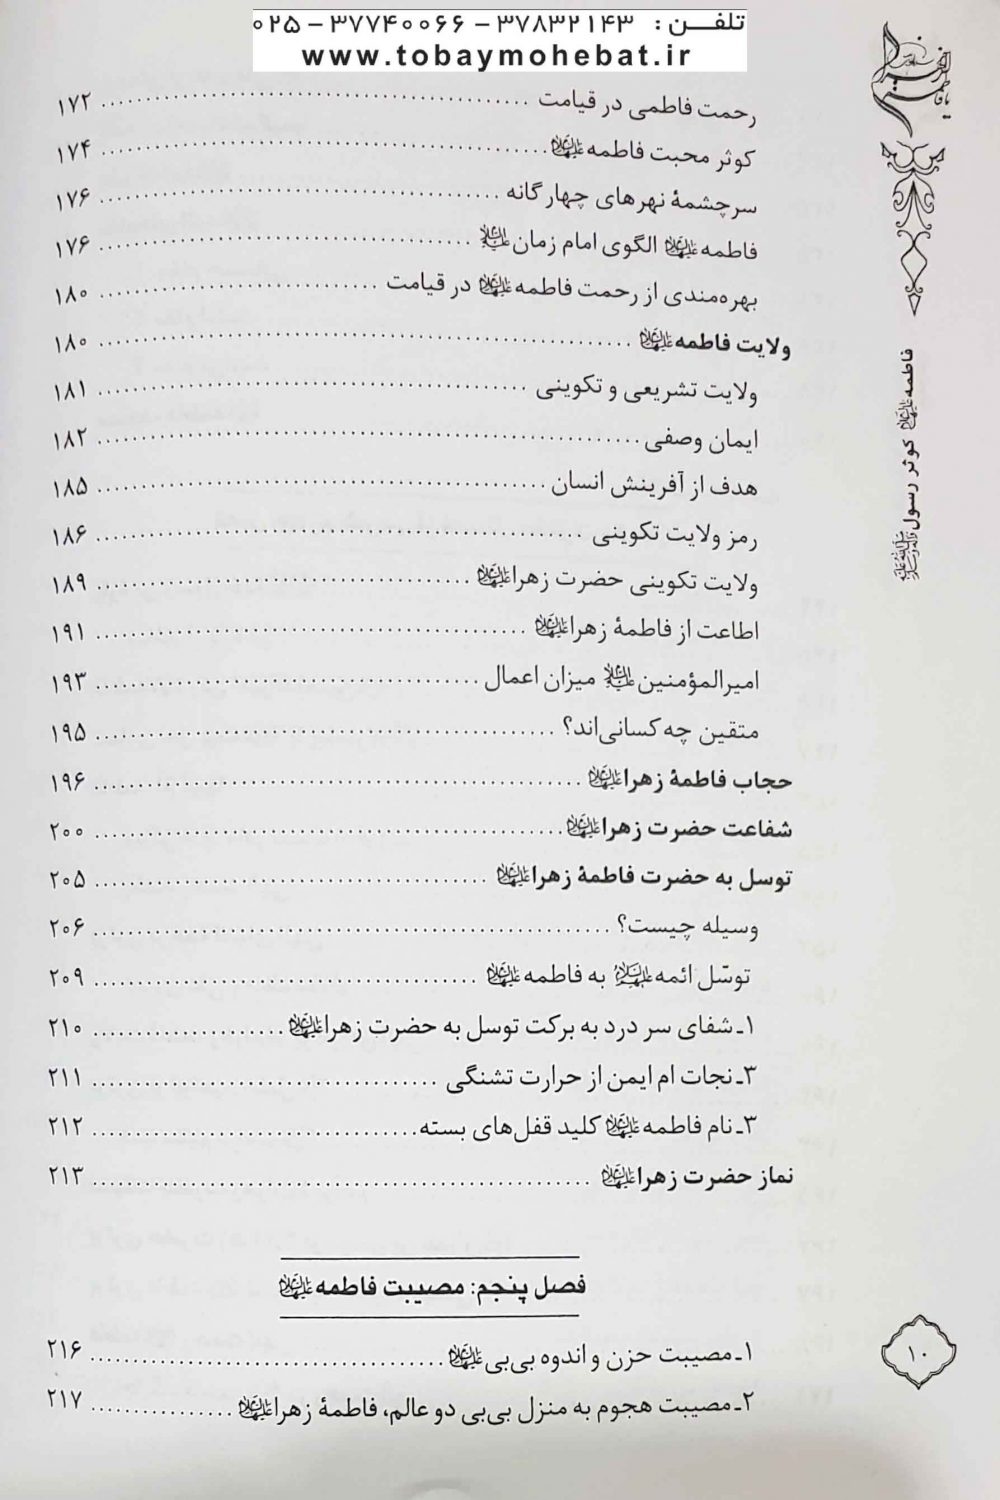 تلفن : ۳۷۸۳۲۱۴۳ – ۳۷۷۴۰۰۶۶ – ۰۲۵
www.tobaymohebat.ir
رحمت فاطمی در قیامت ........ ۱۷۲
کوثر محبت فاطمه علیها السلام ........ ۱۷۴
سرچشمهٔ نهرهای چهارگانه ........ ۱۷۶
فاطمه علیها السلام الگوی امام زمان علیه السلام ........ ۱۷۶
بهره‌مندی از رحمت فاطمه علیها السلام در قیامت ........ ۱۸۰
ولایت فاطمه علیها السلام ........ ۱۸۰
ولایت تشریعی و تکوینی ........ ۱۸۱
ایمان وصفی ........ ۱۸۲
هدف از آفرینش انسان ........ ۱۸۵
رمز ولایت تکوینی ........ ۱۸۶
ولایت تکوینی حضرت زهرا علیها السلام ........ ۱۸۹
اطاعت از فاطمهٔ زهرا علیها السلام ........ ۱۹۱
امیرالمؤمنین علیه السلام میزان اعمال ........ ۱۹۳
متقین چه کسانی‌اند؟ ........ ۱۹۵
حجاب فاطمهٔ زهرا علیها السلام ........ ۱۹۶
شفاعت حضرت زهرا علیها السلام ........ ۲۰۰
توسل به حضرت فاطمهٔ زهرا علیها السلام ........ ۲۰۵
وسیله چیست؟ ........ ۲۰۶
توسّل ائمه علیهم السلام به فاطمه علیها السلام ........ ۲۰۹
۱ـ شفای سر درد به برکت توسل به حضرت زهرا علیها السلام ........ ۲۱۰
۳ـ نجات ام ایمن از حرارت تشنگی ........ ۲۱۱
۳ـ نام فاطمه علیها السلام کلید قفل‌های بسته ........ ۲۱۲
نماز حضرت زهرا علیها السلام ........ ۲۱۳
فصل پنجم: مصیبت فاطمه علیها السلام
۱ـ مصیبت حزن و اندوه بی‌بی علیها السلام ........ ۲۱۶
۲ـ مصیبت هجوم به منزل بی‌بی دو عالم، فاطمهٔ زهرا علیها السلام ........ ۲۱۷
فاطمه علیها السلام کوثر رسول صلی الله علیه و آله و سلم
۱۰